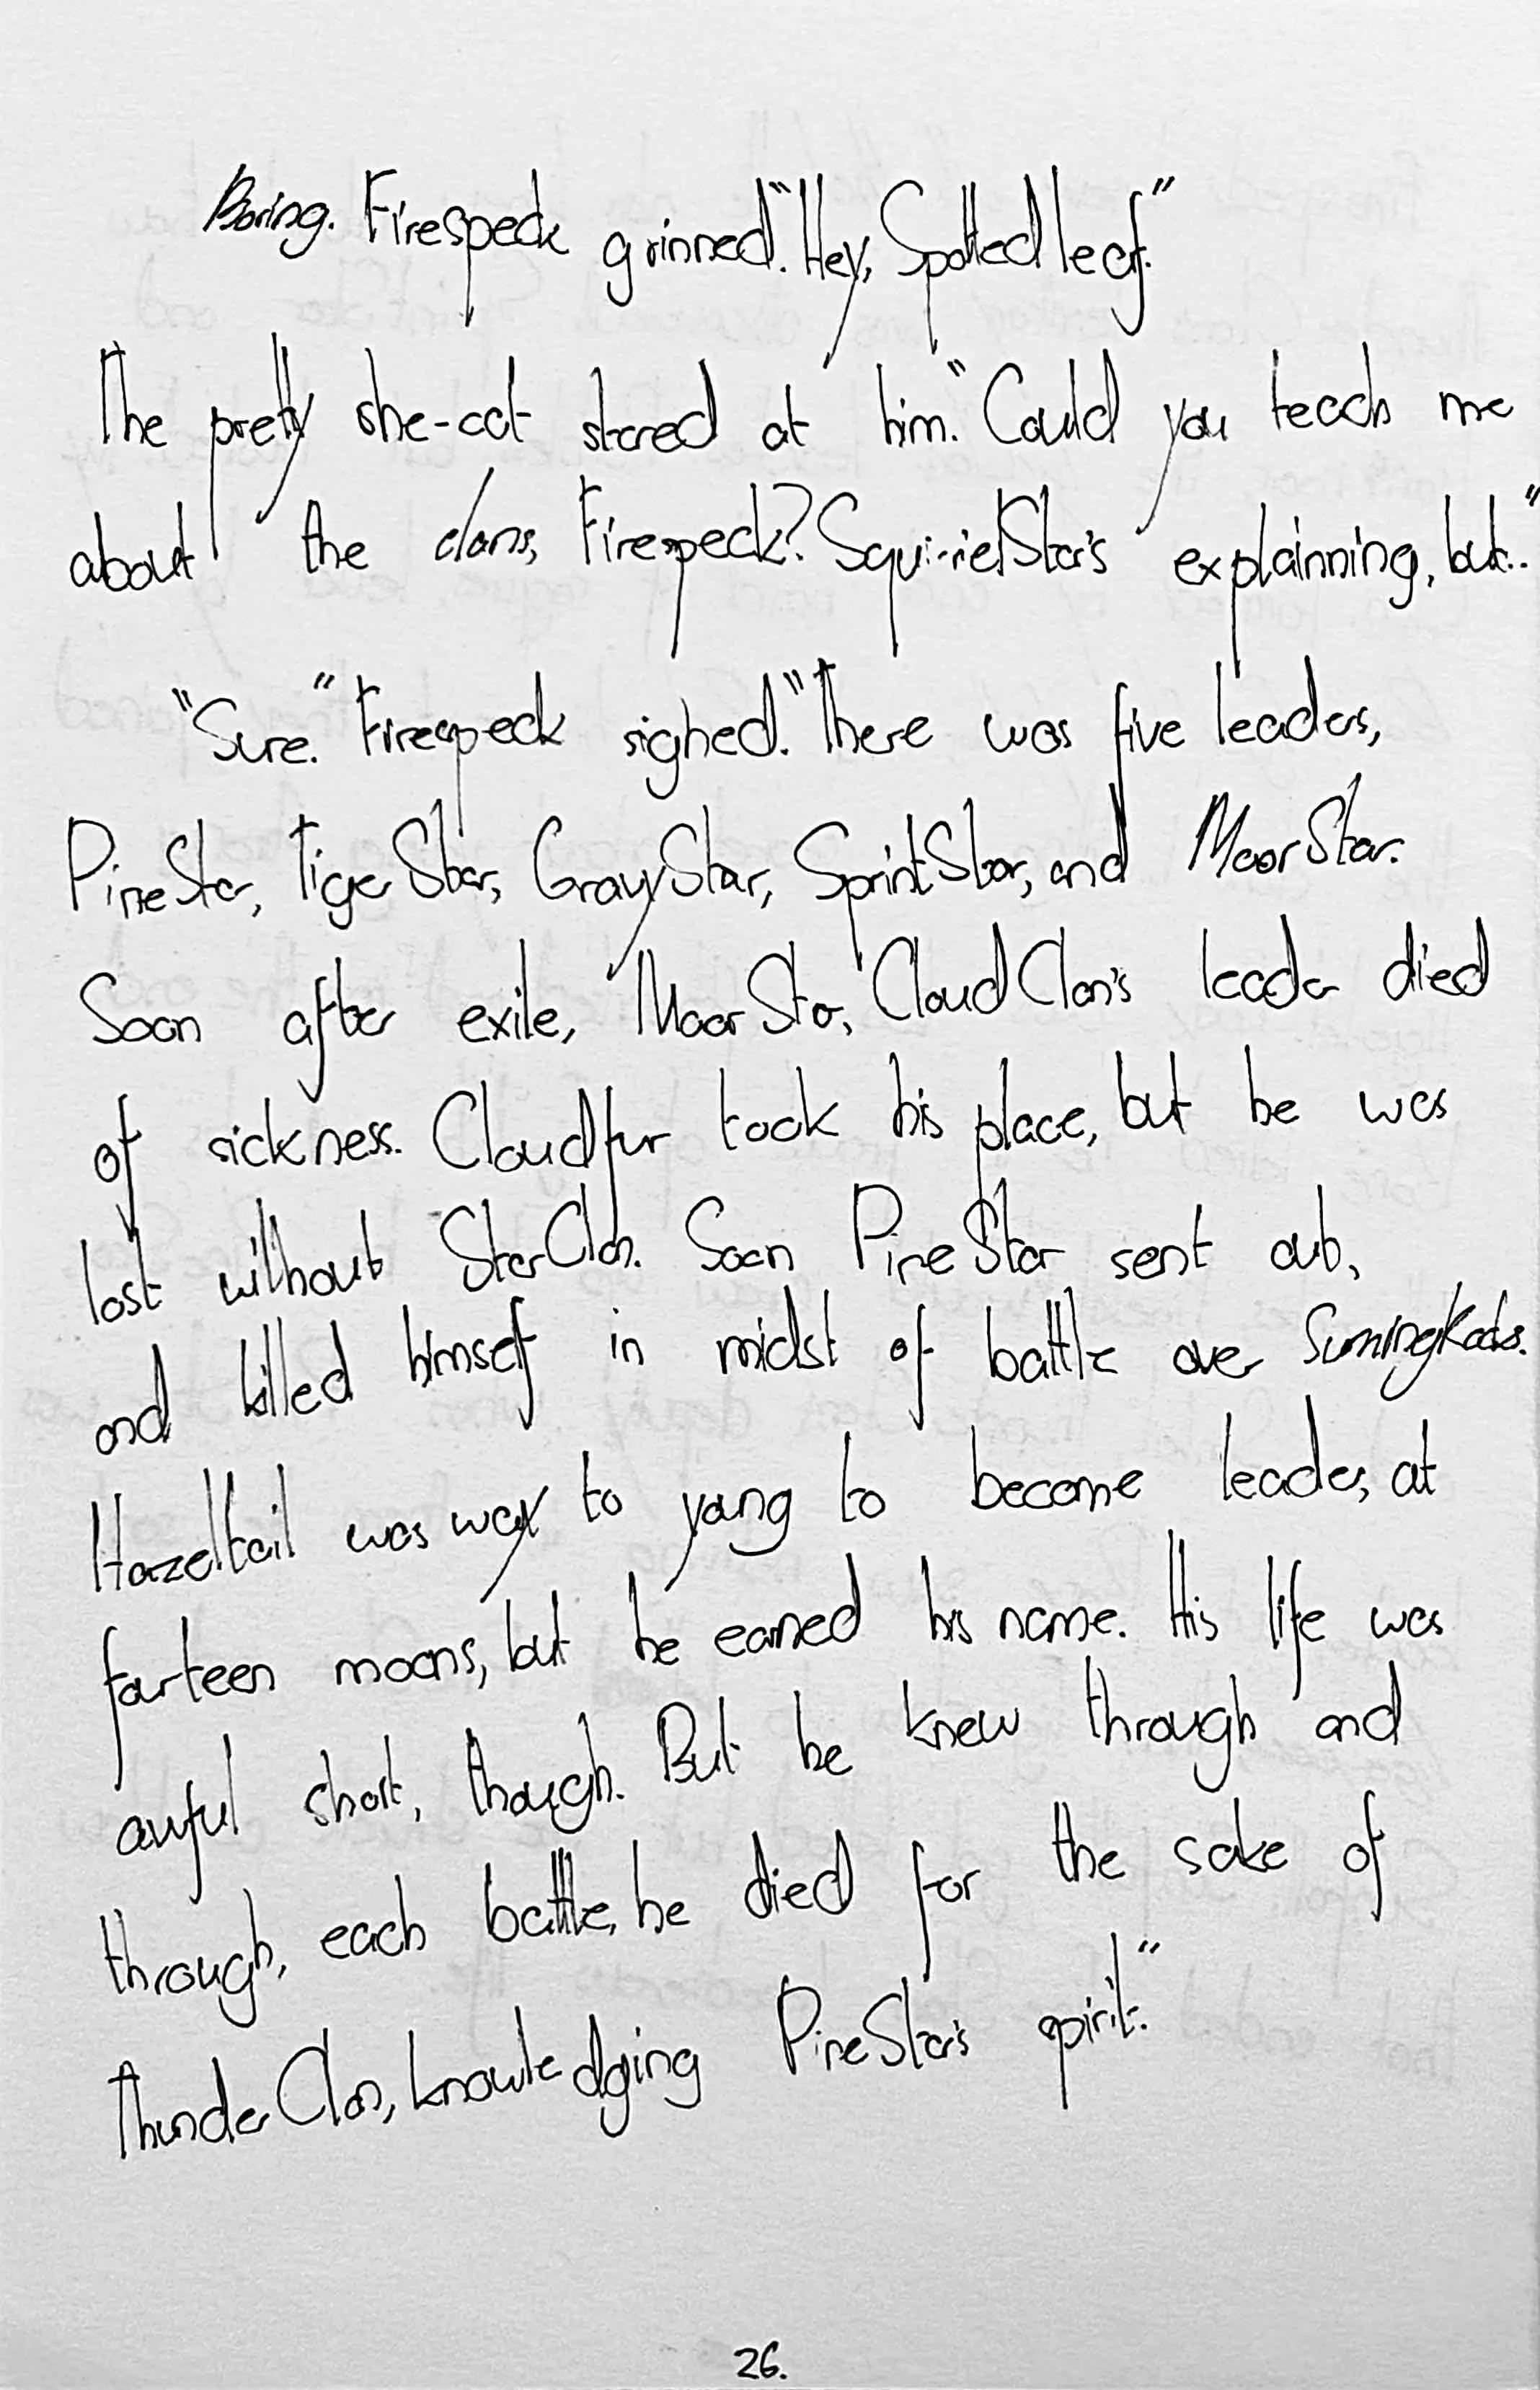 Boring. Firespeck grinned. "Hey, Spottedleaf."
The pretty she-cat stared at him. "Could you teach me
about the clans, Firespeck? SquirrelStar's explainning, but.."
"Sure." Firespeck sighed. "There was five leaders,
PineStar, TigerStar, GrayStar, SprintStar, and MoorStar.
Soon after exile, MoorStar, CloudClan's leader died
of sickness. Cloudfur took his place, but he was
lost without StarClan. Soon PineStar sent out,
and killed himself in midst of battle over
Hazeltail was way to young to become leader, at
fourteen moons, but he earned his name. His life was
awful short, though. But he knew through and
through, each battle, he died for the sake of
ThunderClan, knowledging PineStar's spirit."
26.